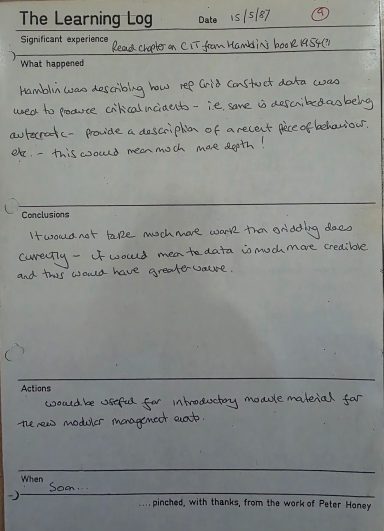 The Learning Log Date 15/5/87 9
Significant experience Read chapter on CIT from Hamblin's book 1954(?)
What happened
Hamblin was describing how rep Grid Construct data was
used to produce critical incidents - i.e. some is described as being
autocratic - provide a description of a recent piece of behaviour.
etc. - this would mean much more depth!
Conclusions
It would not take much more work than gridding does
currently - it would mean the data is much more credible
and thus would have greater value.
Actions
Would be useful for introductory module material for
the new modular management
When Soon...
....pinched, with thanks, from the work of Peter Honey